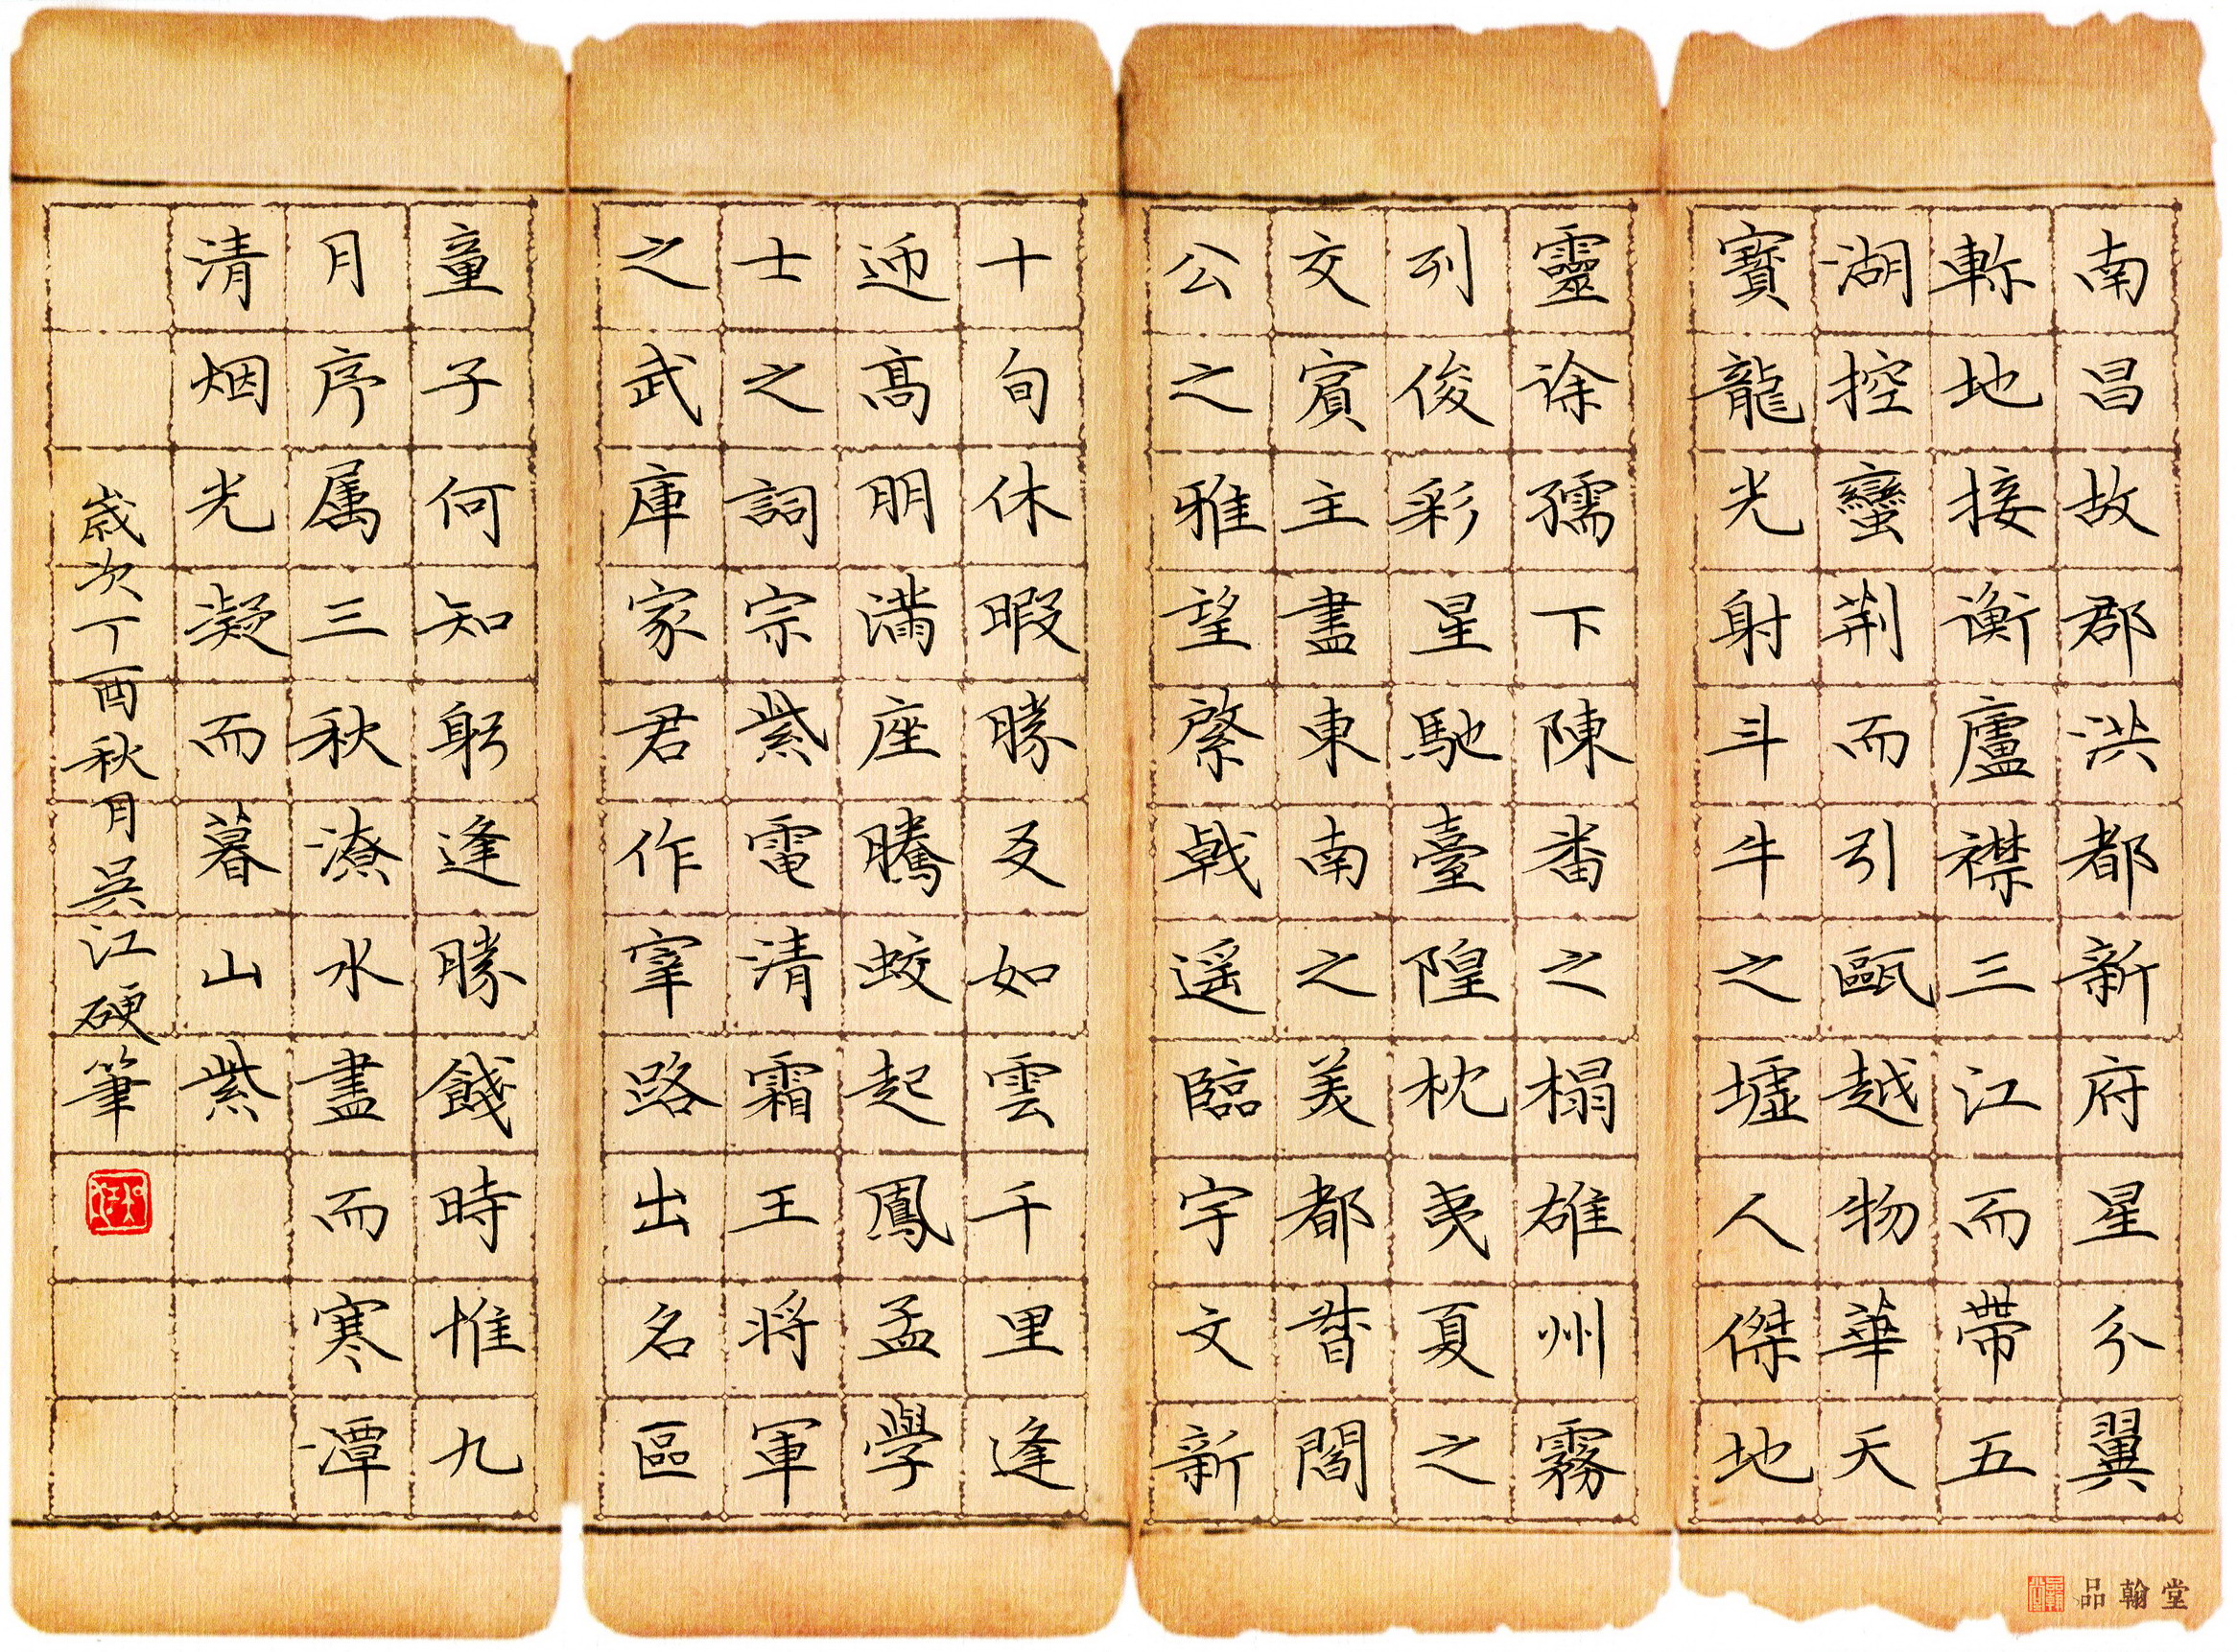 南昌故郡洪都新府星分翼
軫地接衡廬襟三江而帶五
湖控蠻荆而引甌越物華天
寶龍光射斗牛之墟人傑地
靈徐孺下陳番之榻雄州霧
列俊彩星馳臺隍枕夷夏之
交賓主盡東南之美都督閻
公之雅望棨戟遥臨宇文新
十旬休暇勝友如雲千里逢
迎高朋滿座騰蛟起鳳孟學
士之詞宗紫電清霜王将軍
之武庫家君作宰路出區名
童子何知躬逢勝餞時惟九
月序属三秋潦水盡而寒潭
清烟光凝而暮山紫
歲次丁酉秋月吳江硬筆
品翰堂